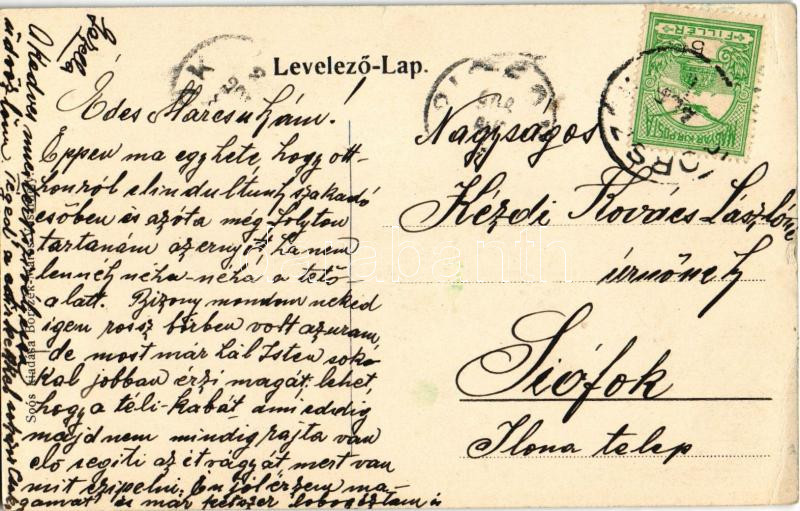 Levelező-Lap.
Édes Marcsukám!
Éppen ma egy hete, hogy ott-
honról elindultunk szakadó
esőben és azóta még folyton
tartanám az ernyőt, ha nem
lennék néha-néha a tető
alatt. Bizony mondom neked
igen rossz bőrben volt az uram,
de most már hál Isten soka
kal jobban érzi magát, lehet,
hogy a téli-kabát, ami eddig
majdnem mindig rajta van
elő segiti az étvágyát, mert van
mit czipelni. Én jól érzem ma-
gamat és már kétszer
Nagyságos
Kézdi Kovács Lászlóné
úrnőnek
Siófok
Ilona telep
MAGYAR KIR. POSTA
FILLÉR
5
darabanth